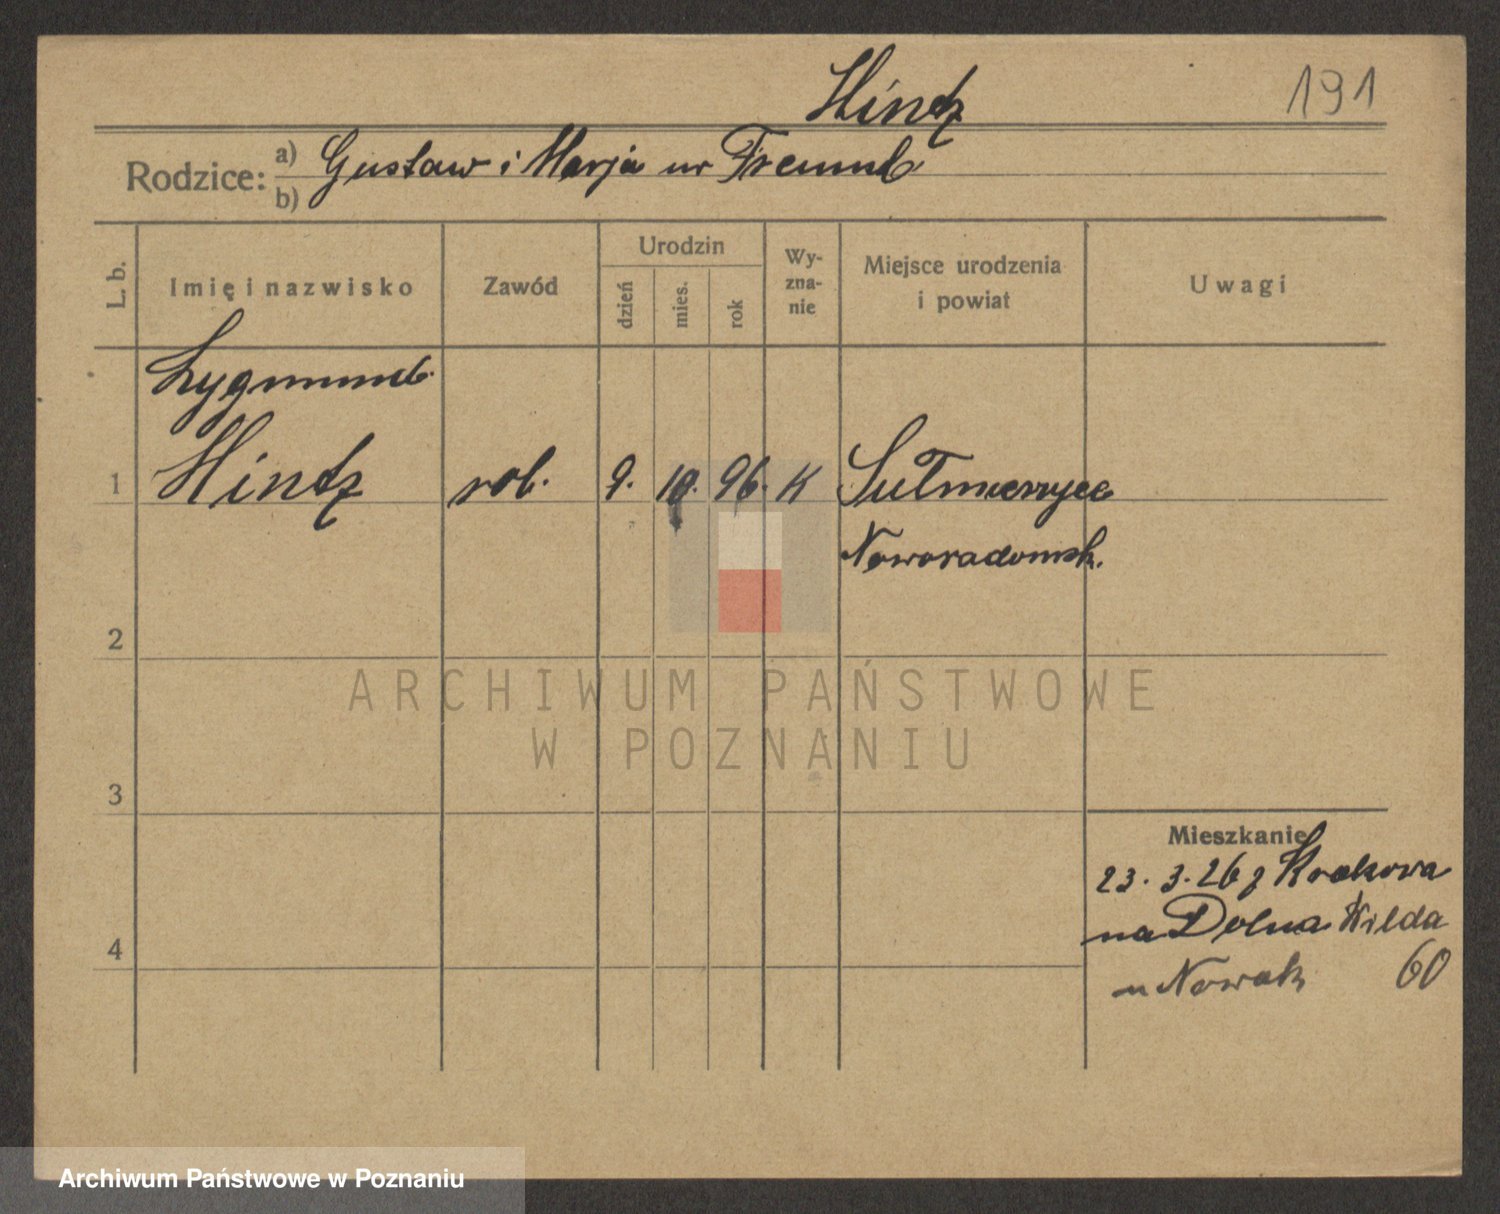 Hintz
191
Rodzice:
a) Gustaw i Marja ur Freund
b)
L. b.
Imię i nazwisko
Zawód
Urodzin
dzień
mies.
rok
Wy-
zna-
nie
Miejsce urodzenia
i powiat
Uwagi
Zygmund
1 Hintz rob. 9. 10. 96. K Sulmierzyce
Noworadomsk.
2
3
4
Mieszkanie
23. 3. 26 z Krakowa
na Dolna Wilda
u Nowak 60
ARCHIWUM PAŃSTWOWE
W POZNANIU
Archiwum Państwowe w Poznaniu